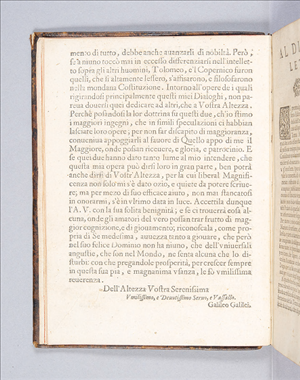 mento di tutto, debbe anche avanzarsi di nobiltà. Però,
se a niuno toccò mai in eccesso differenziarsi nell'intellet-
to sopra gli altri huomini, Tolomeo, e'l Copernico furon
quelli, che sì altamente lessero, s'affisarono, e filosofarono
nella mondana Costituzione. Intorno all'opere de i quali
rigirandosi principalmente questi miei Dialoghi, non pa-
reva doversi quei dedicare ad altri, che a Vostra Altezza.
Perchè posandosi la lor dottrina su questi due, ch'io stimo
i maggiori ingegni, che in simili speculazioni ci habbian
lasciate loro opere; per non far discapito di maggioranza,
conveniva appoggiarli al favore di Quello appo di me il
Maggiore, onde possan ricevere, e gloria, e patrocinio. E
se quei due hanno dato tanto lume al mio intendere, che
questa mia opera può dirsi loro in gran parte, ben potrà
anche dirsi di Vostr'Altezza, per la cui liberal Magnifi-
cenza non solo mi s'è dato ozio, e quiete da potere scrive-
re; ma per mezo di suo efficace aiuto, non mai stancatosi
in onorarmi, s'è in vltimo data in luce. Accettila dunque
l'A.V. con la sua solita benignità; e se ci troverrà cosa al-
cuna, onde gli amatori del vero possan trar frutto di mag-
gior cognizione, e di giovamento; riconoscala, come pro-
pria di Se medesima, avvezza tanto a giovare, che però
nel suo felice Dominio non ha niuno, che dell'vniversali
angustie, che son nel Mondo, ne senta alcuna che lo di-
sturbi: con che pregandole prosperità, per crescer sempre
in questa sua pia, e magnanima vsanza, le fò vmilissima
reverenza.
Dell'Altezza Vostra Serenissima
Vmilissimo, e Devotissimo Servo, e Vassallo.
Galileo Galilei.
AL D
LE